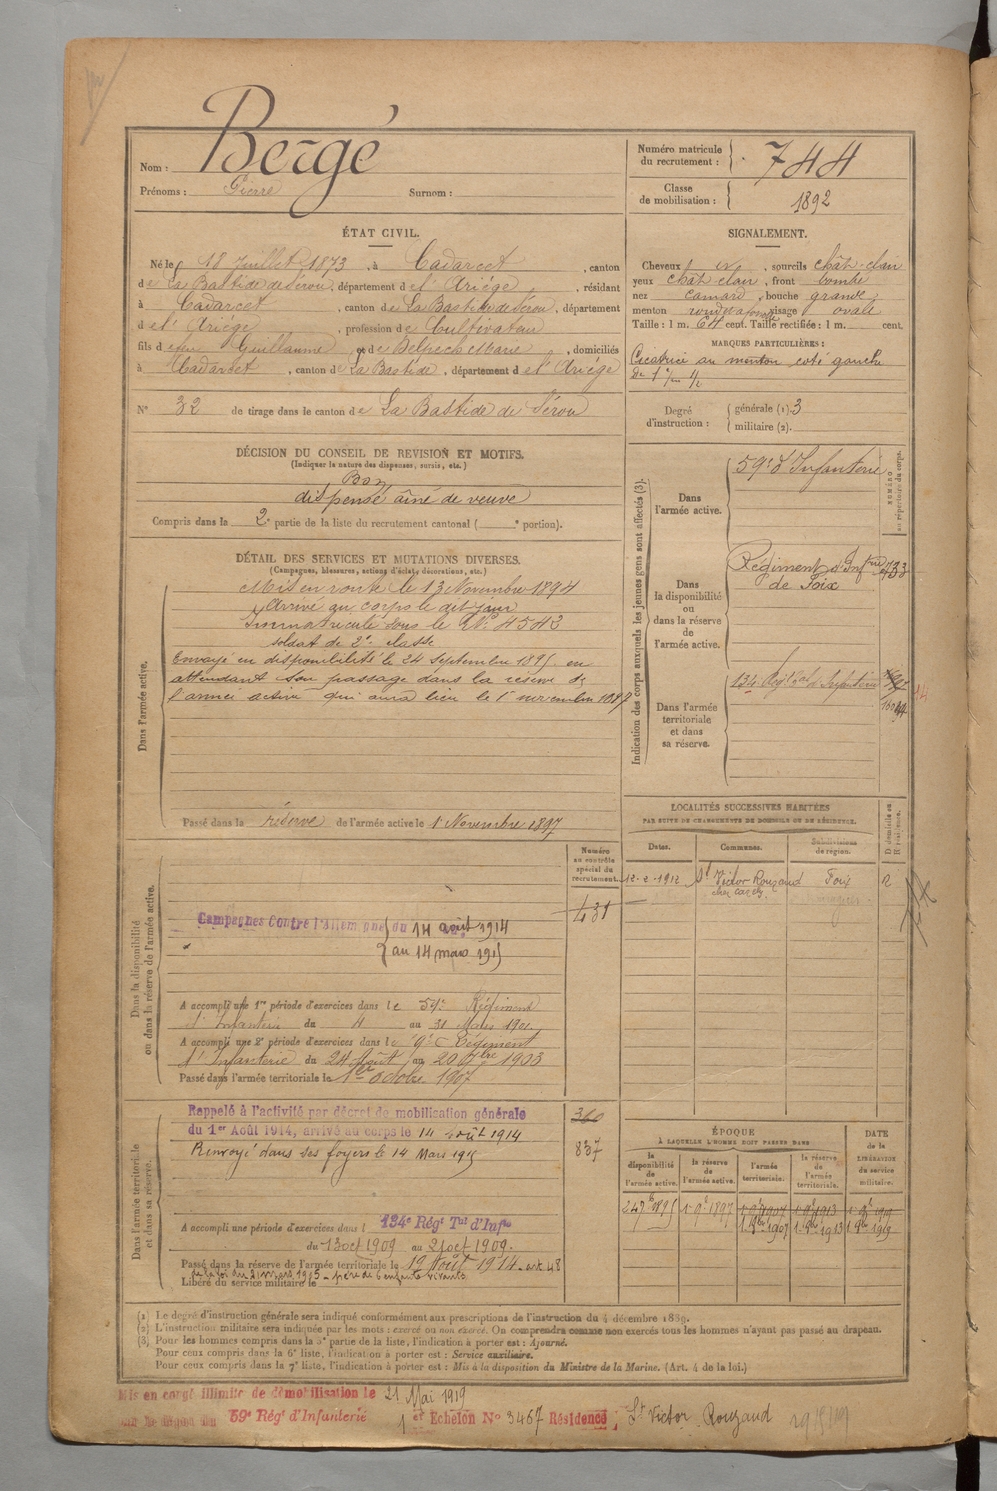 Nom : Bergé
Prénoms : Pierre Surnom :
Numéro matricule du recrutement : 744
Classe de mobilisation : 1892
ÉTAT CIVIL.
Né le 18 Juillet 1873, à Cadarcet, canton
de La Bastide de Sérou, département de l'Ariège, résidant
à Cadarcet, canton de La Bastide de Sérou, département
de l'Ariège, profession de Cultivateur
fils de feu Guillaume et de Belpech Marie, domiciliés
à Cadarcet, canton de La Bastide, département de l'Ariège
N° 32 de tirage dans le canton de La Bastide de Sérou
SIGNALEMENT.
Cheveux, sourcils chât-clair
yeux chât-clair, front bombé
nez camard, bouche grande
menton rond, visage ovale
Taille : 1 m. 64 cent. Taille rectifiée : 1 m. cent.
MARQUES PARTICULIÈRES :
Cicatrice au menton coté gauche
De 1 1/2
Degré d'instruction : générale (1). 3
militaire (2).
DÉCISION DU CONSEIL DE REVISION ET MOTIFS.
(Indiquer la nature des dispenses, sursis, etc.)
Bon
dispensé aîné de veuve
Compris dans la 2e partie de la liste du recrutement cantonal ( e portion).
DÉTAIL DES SERVICES ET MUTATIONS DIVERSES.
(Campagnes, blessures, actions d'éclat, décorations, etc.)
Dans l'armée active.
Mis en route le 13 Novembre 1894
Arrivé au corps le dit jour
Immatriculé sous le N° 4542
soldat de 2e classe
Envoyé en disponibilité le 24 septembre 1895 en
attendant son passage dans la réserve de
l'armée active qui aura lieu le 1er novembre 1897
Passé dans la réserve de l'armée active le 1er Novembre 1897
Indication des corps auxquels les jeunes gens sont affectés (3).
NUMÉRO au répertoire du corps.
Dans l'armée active.
59e d'Infanterie
Dans la disponibilité ou dans la réserve de l'armée active.
Régiment d'Infrie
de Foix
Dans l'armée territoriale et dans sa réserve.
134e Régt Tal d'Infanterie
LOCALITÉS SUCCESSIVES HABITÉES
PAR SUITE DE CHANGEMENTS DE DOMICILE OU DE RÉSIDENCE.
Dates. Communes. Subdivisions de région. D domicile ou R résidence.
12-2-1912 St Victor Rouzaud Foix R
Numéro au contrôle spécial du recrutement.
431
Dans la disponibilité ou dans la réserve de l'armée active.
Campagnes Contre l'Allemagne du 14 août 1914
au 14 mars 1915
A accompli une 1re période d'exercices dans le 59e Régiment
d'Infanterie du 4 au 31 Mars 1901
A accompli une 2e période d'exercices dans le 59e Régiment
d'Infanterie du 24 Août au 20 7bre 1903
Passé dans l'armée territoriale le 1er Octobre 1907
Dans l'armée territoriale et dans sa réserve.
360
837
Rappelé à l'activité par décret de mobilisation générale
du 1er Août 1914, arrivé au corps le 14 août 1914
Renvoyé dans ses foyers le 14 Mars 1915
A accompli une période d'exercices dans l 134e Régt Tal d'Infie
du 13 oct 1909 au 21 oct 1909.
Passé dans la réserve de l'armée territoriale le 12 Août 1914. art 48
de la loi du 21 mars 1905 - père de 6 enfants vivants
Libéré du service militaire le
ÉPOQUE
À LAQUELLE L'HOMME DOIT PASSER DANS
la disponibilité de l'armée active. la réserve de l'armée active. l'armée territoriale. la réserve de l'armée territoriale. DATE de la LIBÉRATION du service militaire.
24 7bre 1895 1 9bre 1897 1 9bre 1907 1 9bre 1913 1 9bre 1919
1 8bre 1907 1 8bre 1913 1 8bre 1919
(1) Le degré d'instruction générale sera indiqué conformément aux prescriptions de l'instruction du 4 décembre 1889.
(2) L'instruction militaire sera indiquée par les mots : exercé ou non exercé. On comprendra comme non exercés tous les hommes n'ayant pas passé au drapeau.
(3) Pour les hommes compris dans la 5e partie de la liste, l'indication à porter est : Ajourné.
Pour ceux compris dans la 6e liste, l'indication à porter est : Service auxiliaire.
Pour ceux compris dans la 7e liste, l'indication à porter est : Mis à la disposition du Ministre de la Marine. (Art. 4 de la loi.)
Mis en congé illimité de démobilisation le 21 Mai 1919
59e Régt d'Infanterie 1er Echelon N° 3467 Résidence St Victor Rouzaud